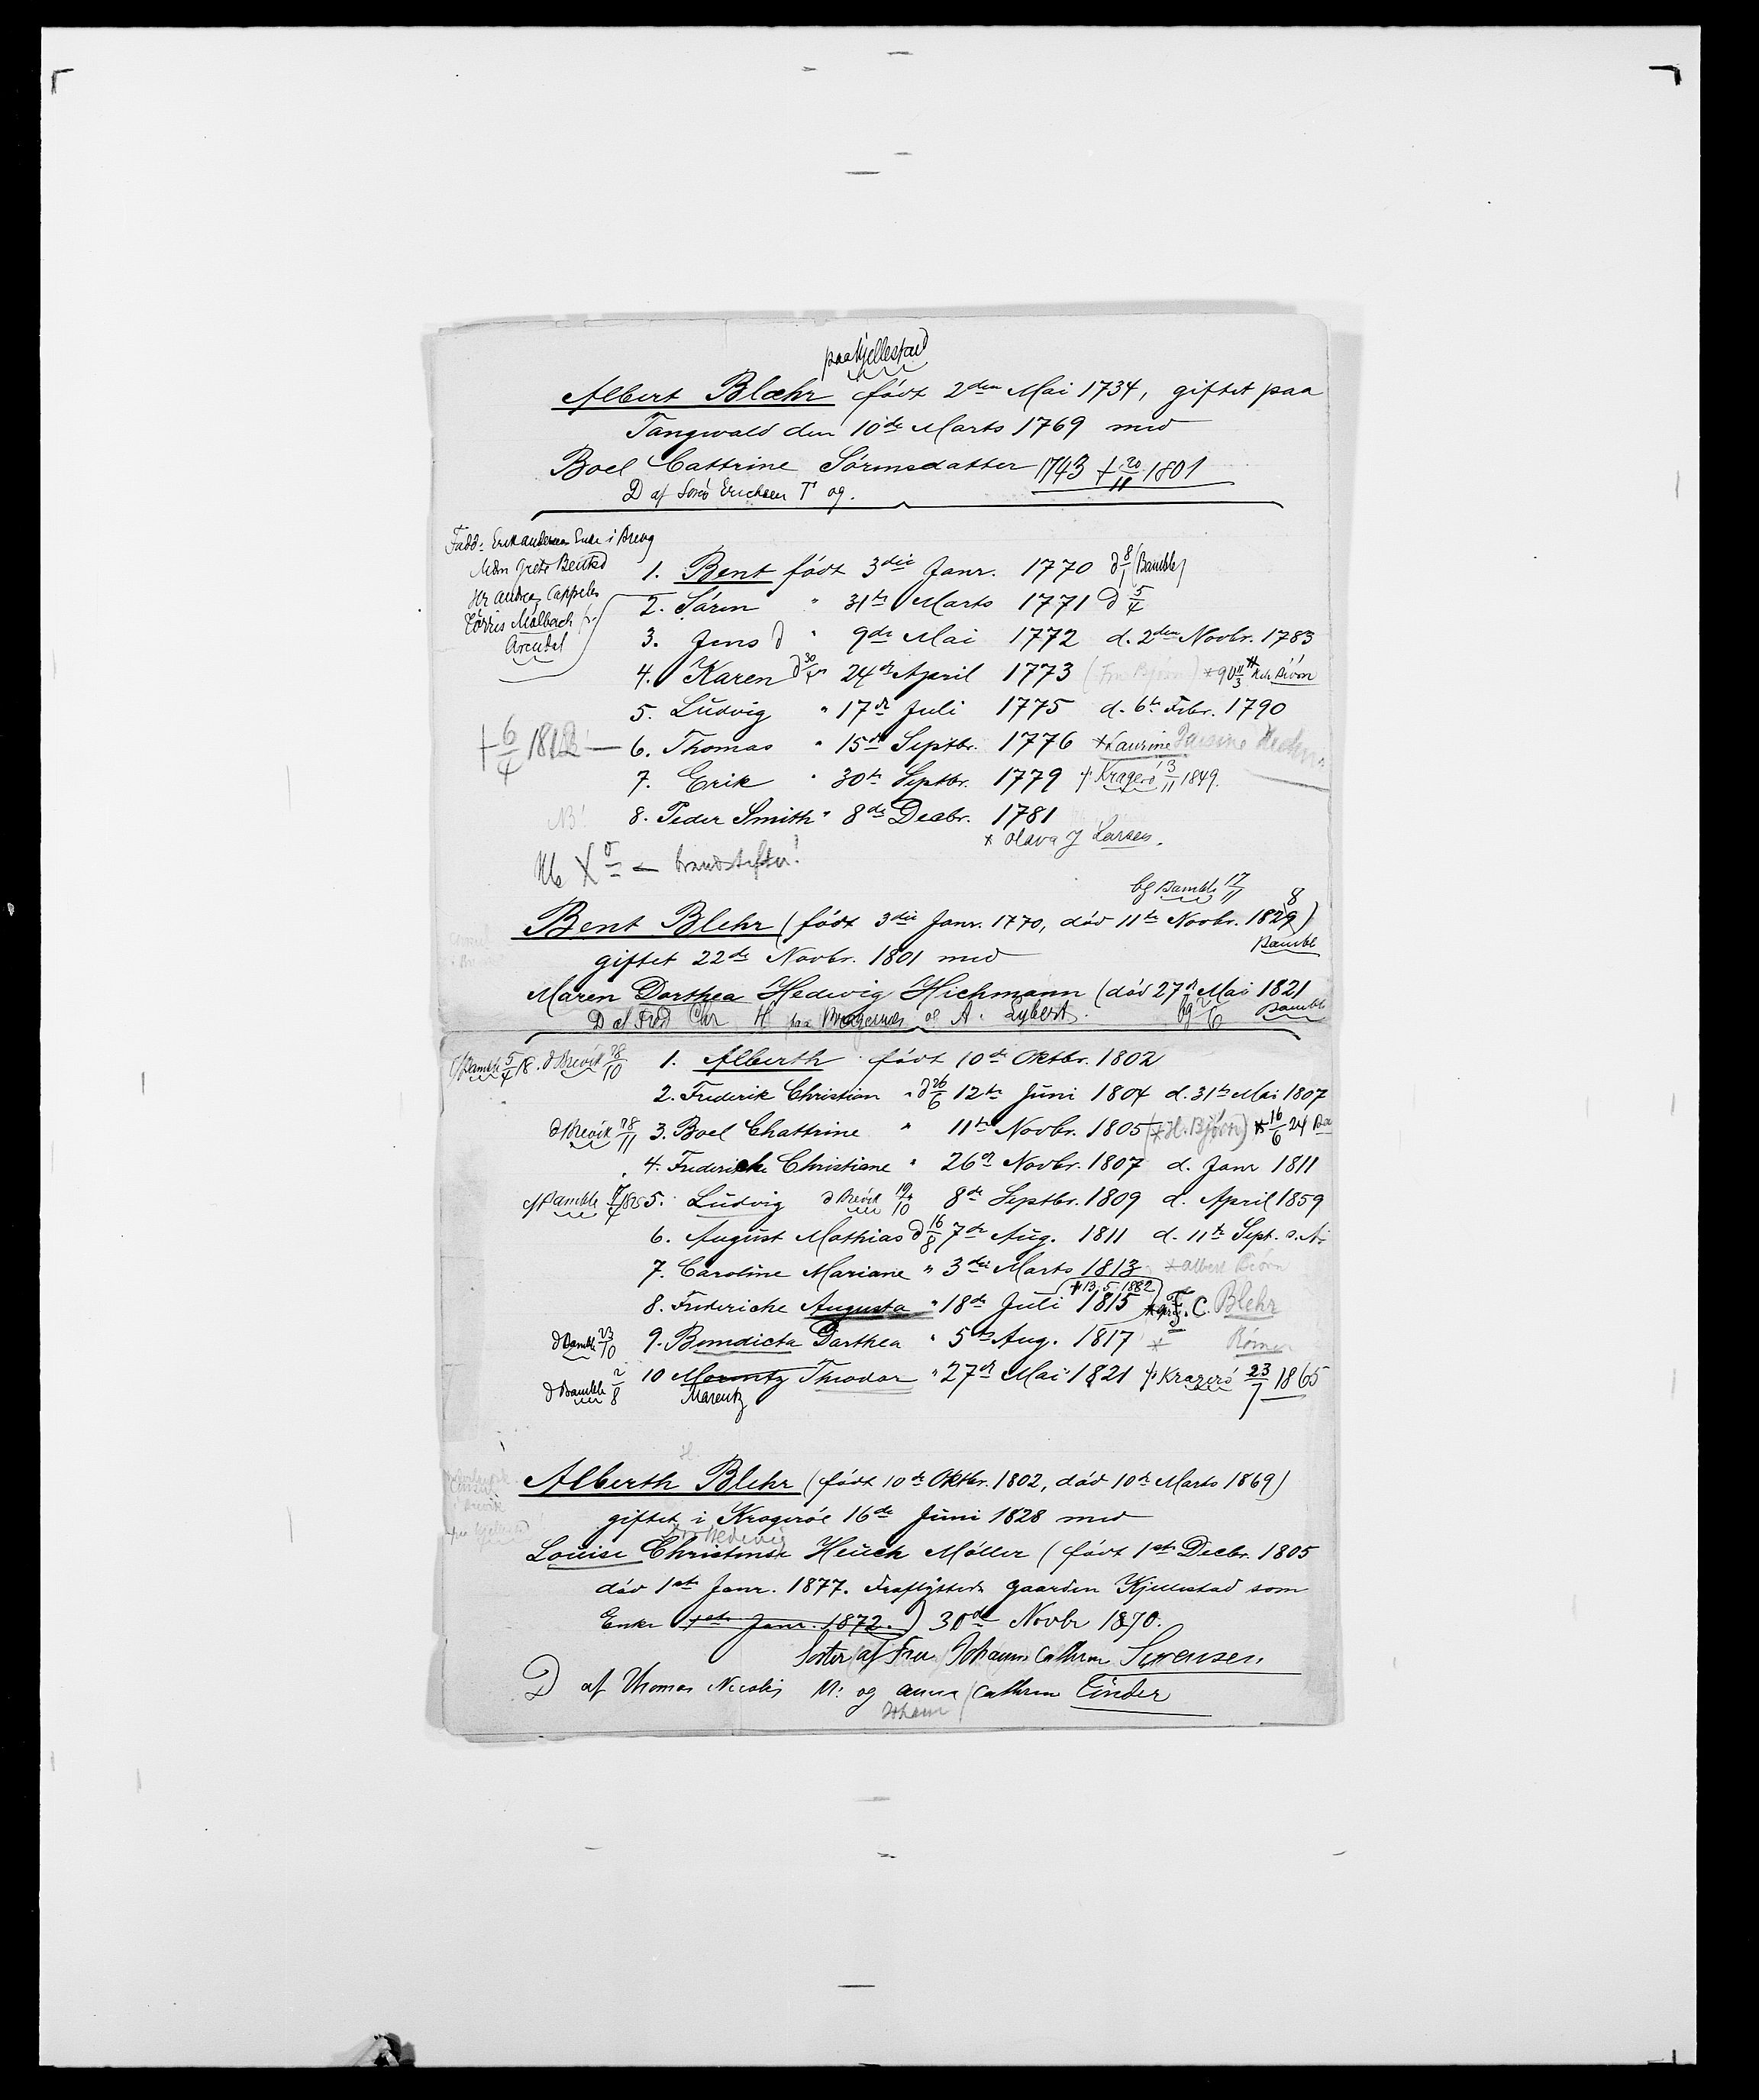 paa Kjellestad
Albert Blæhr født 2den Mai 1734, giftet paa
Tangwald den 10de Marts 1769 med
Boel Cattrine Sørensdatter 1743 † 20/11 1801
D af Sørs Erichsen T og.
Fadd: Erik Andersen i Brevg
Mdm Grete Bentsd
Hr Andreas Cappelen
Tørris Malbach fr.
Arendal
1. Bent født 3die Janr. 1770 d 8/1 (Bamble)
2. Sören " 31te Marts 1771 d 5/4
3. Jens d " 9de Mai 1772 d. 2den Novbr. 1783
4. Karen d 30/4 " 24de April 1773 (Fru Bjørn) * 90 11/3 Biörn
5. Ludvig " 17de Juli 1775 d. 6te Febr. 1790
† 6/4 1812 — 6. Thomas " 15de Septbr. 1776 * Laurine
7. Erik " 30te Septbr. 1779 † Kragerö 13/11 1849.
8. Peder Smith " 8de Decbr. 1781
* Olava J Larsen.
brandstifter!
bg Bamble 17/11
Bent Blehr (født 3die Janr. 1770, död 11te Novbr. 1829) 8
Bamble
giftet 22de Novbr. 1801 med
Maren Dorthea Hedevig Hichmann (död 27de Mai 1821
D af Fred Chr H paa Bragernes og A. Lybert. bg 7/6 Bamble
c/Bamble 5/4 18. d Brevik 28/10 1. Alberth født 10de Oktbr. 1802
2. Frederik Christian " d 26/6 12te Juni 1804 d. 31te Mai 1807
d Brevik 28/11 3. Boel Chattrine " 11te Novbr. 1805 (* H. Bjørn) * 16/6 24 Ba
4. Frederiche Christiane " 26de Novbr. 1807 d. Janr 1811
c/Bamble 5. Ludvig d Brevik 19/10 8de Septbr. 1809 d. April 1859
6. August Mathias d 16/8 7de Aug. 1811 d. 11te Sept. s. A.
7. Caroline Mariane " 3die Marts 1813 * Albert Biörn
† 13.5.1882
8. Frederiche Augusta " 18de Juli 1815 * F. C. Blehr
d Bamble 23/10 9. Benedicta Dorthea " 5te Aug. 1817 * Römer
d Bamble 2/8 10 Mouritz Theodor " 27de Mai 1821 † Kragerö 23/7 1865
Marentz
Alberth Blehr (født 10de Oktbr. 1802, död 10de Marts 1869)
giftet i Krageröe 16de Juni 1828 med
Hedevig
Louise Christense Heuch Möller (født 1ste Decbr. 1805
död 1ste Janr. 1877. Fraflyttede Gaarden Kjellestad som
Enke 1ste Janr. 1872.) 30de Novbr 1870.
Søster af Fru Johanne Cathrine Sørensen
D af Thomas Nicolai M: og Anna Cathrine Tinder
Johan